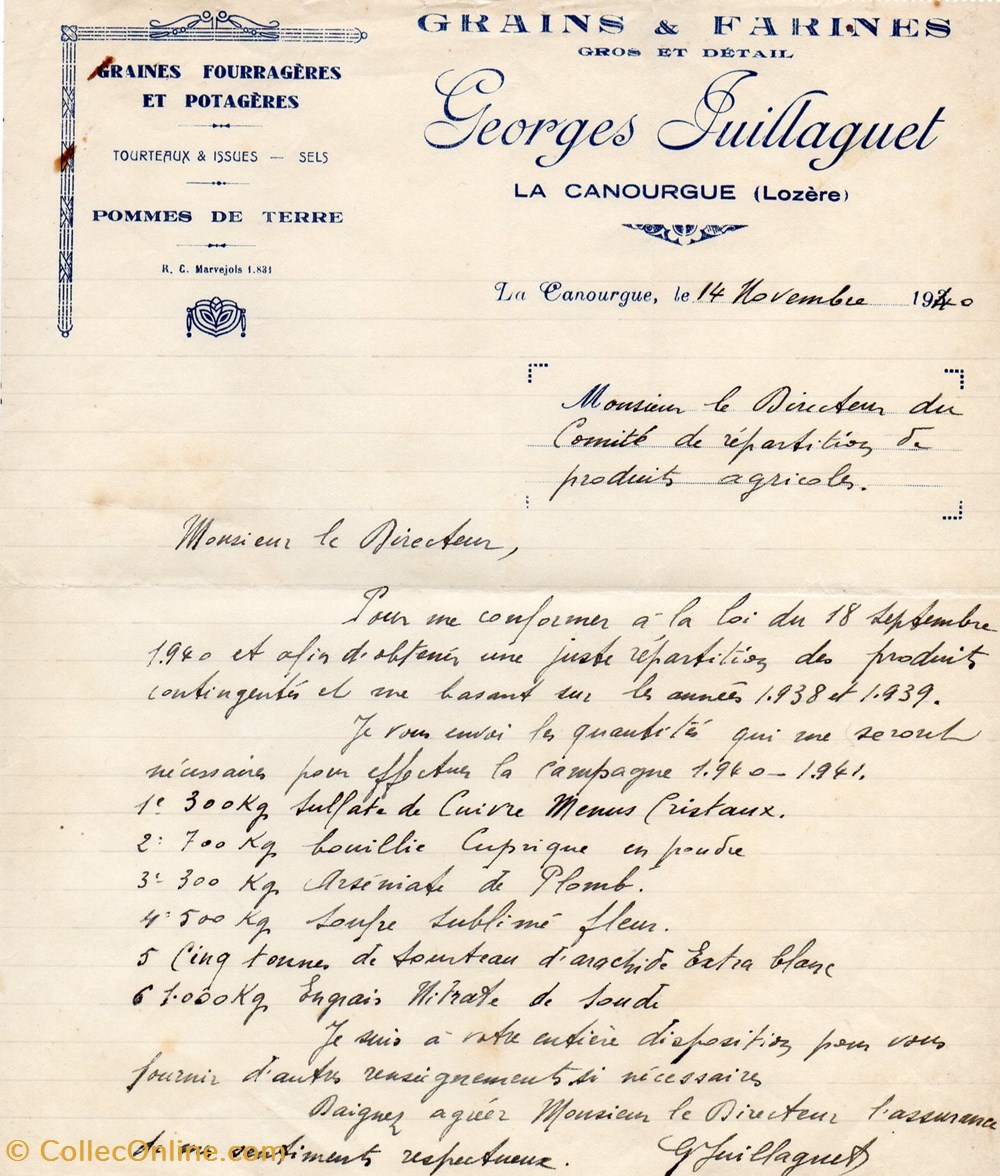 GRAINES FOURRAGÈRES
ET POTAGÈRES
TOURTEAUX & ISSUES — SELS
POMMES DE TERRE
R. C. Marvejols 1.831
GRAINS & FARINES
GROS ET DÉTAIL
Georges Juillaguet
LA CANOURGUE (Lozère)
La Canourgue, le 14 Novembre 1940
Monsieur le Directeur du
Comité de répartition de
produits agricoles.
Monsieur le Directeur,
Pour me conformer à la loi du 18 septembre
1.940 et afin d'obtenir une juste répartition des produits
contingentés et me basant sur les années 1.938 et 1.939.
Je vous envoi les quantités qui me seront
nécessaires pour effectuer la campagne 1.940 - 1.941.
1e 300 Kg sulfate de Cuivre Menus Cristaux.
2e 700 Kg bouillie Cuprique en poudre
3e 300 Kg Arséniate de Plomb.
4e 500 Kg soufre sublimé fleur.
5 Cinq tonnes de tourteau d'arachide Extra blanc
6 1.000 Kg Engrais Nitrate de Soude
Je suis à votre entière disposition pour vous
fournir d'autres renseignements si nécessaires
Daignez agréer Monsieur le Directeur l'assurance
de mes sentiments respectueux. GJuillaguet
© CollecOnline.com